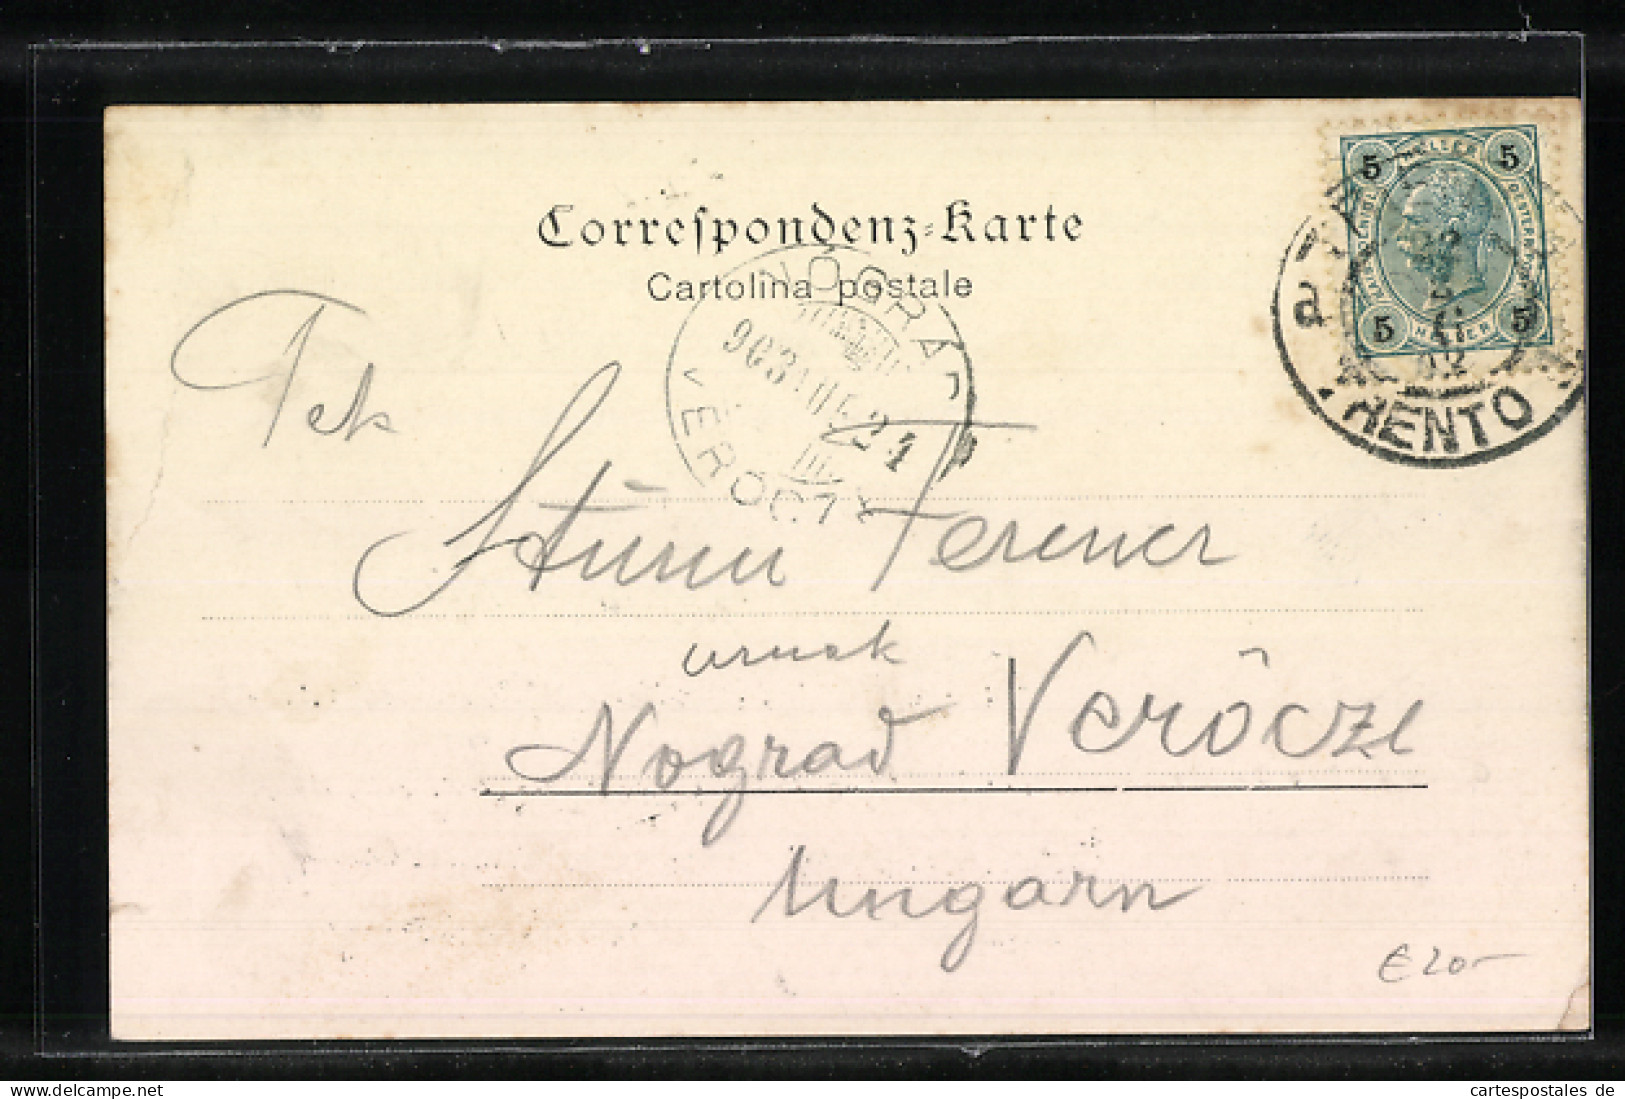 Correspondenz-Karte
Cartolina postale
5 HELLER 5
5 HELLER 5
TRENTO
NOGRAD
903
VERŐCZE
Tek
Sturm Ferencz
urnak
Nograd Verôcze
Ungarn
€ 20-
cartespostales de